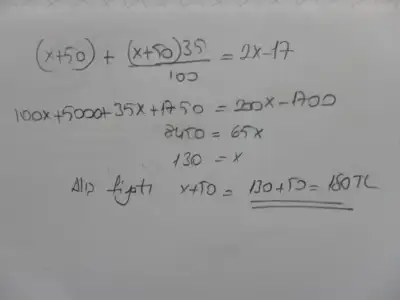 (x+50) + (x+50)35/100 = 2x-17
100x+5000+35x+1750 = 200x-1700
8450 = 65x
130 = x
Alış fiyatı x+50 = 130+50 = 180 TL